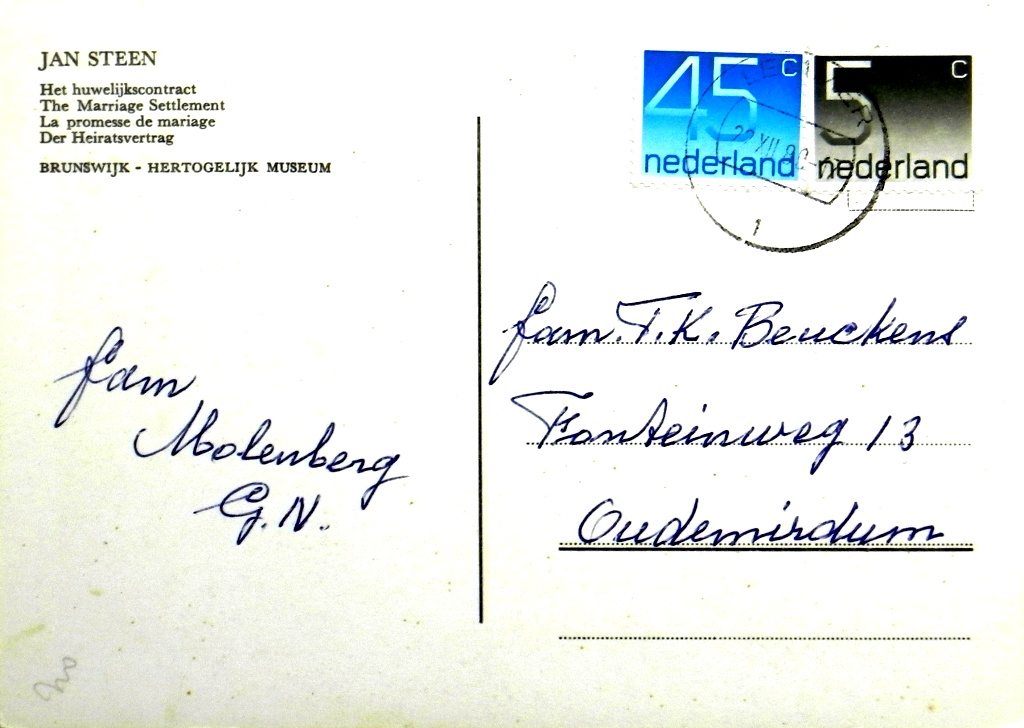 JAN STEEN
Het huwelijkscontract
The Marriage Settlement
La promesse de mariage
Der Heiratsvertrag
BRUNSWIJK - HERTOGELIJK MUSEUM
45 c
nederland
5 c
nederland
22 XII 80
1
fam. T.K. Beuckens
Fonteinweg 13
Oudemirdum
fam
Molenberg
G.N.